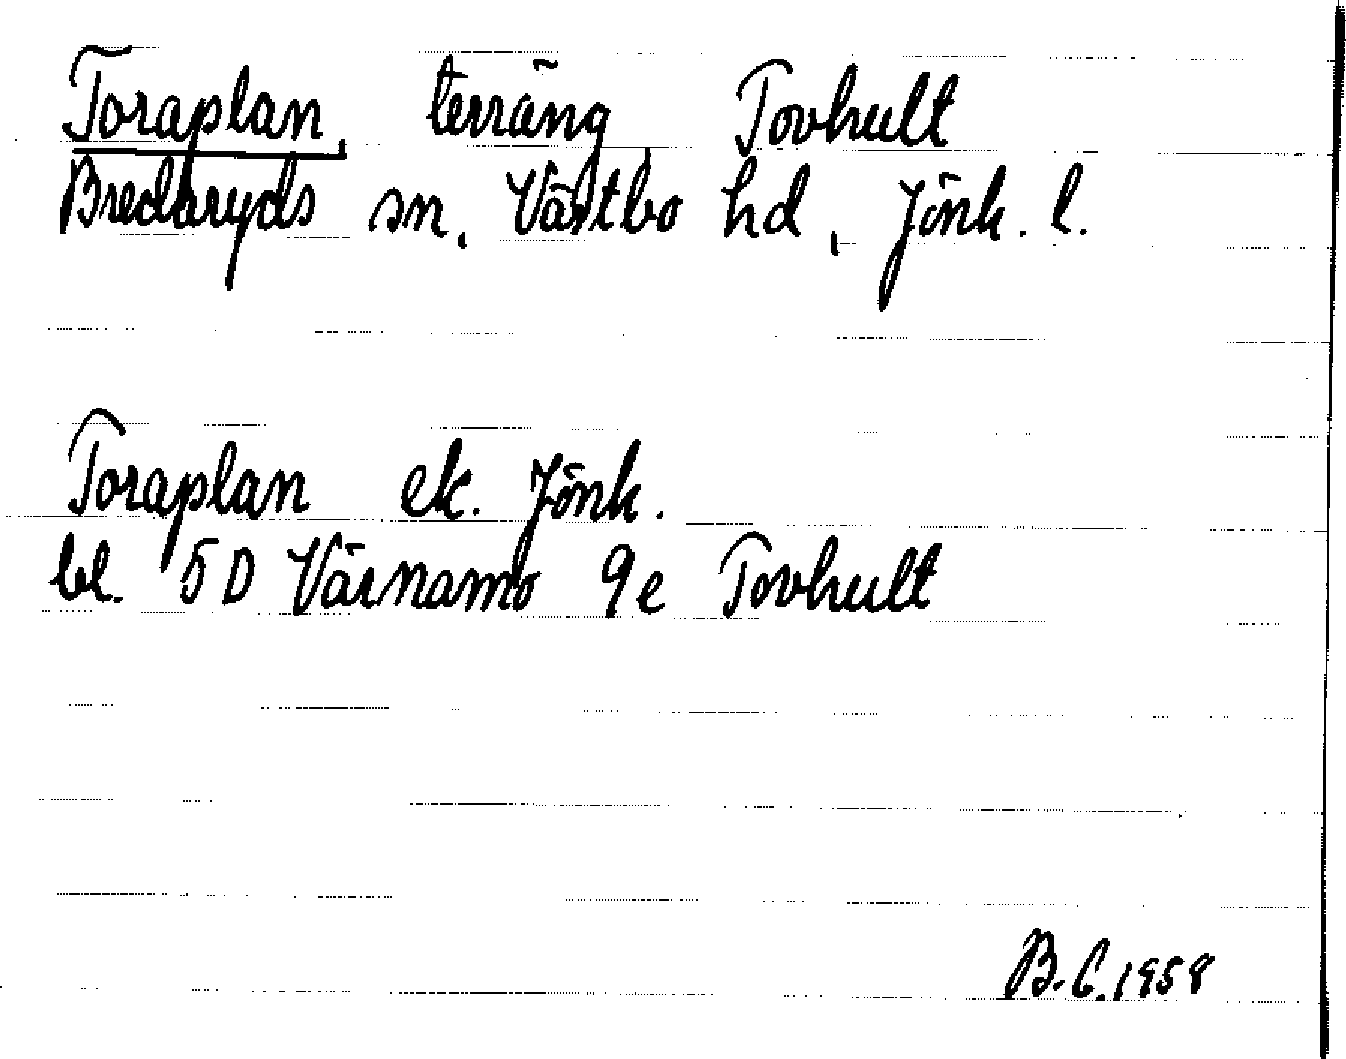 Toraplan, terräng Tovhult
Bredaryds sn, Västbo hd, Jönk. l.
Toraplan ek. Jönk.
bl. 5D Värnamo 9e Tovhult
B.C. 1958